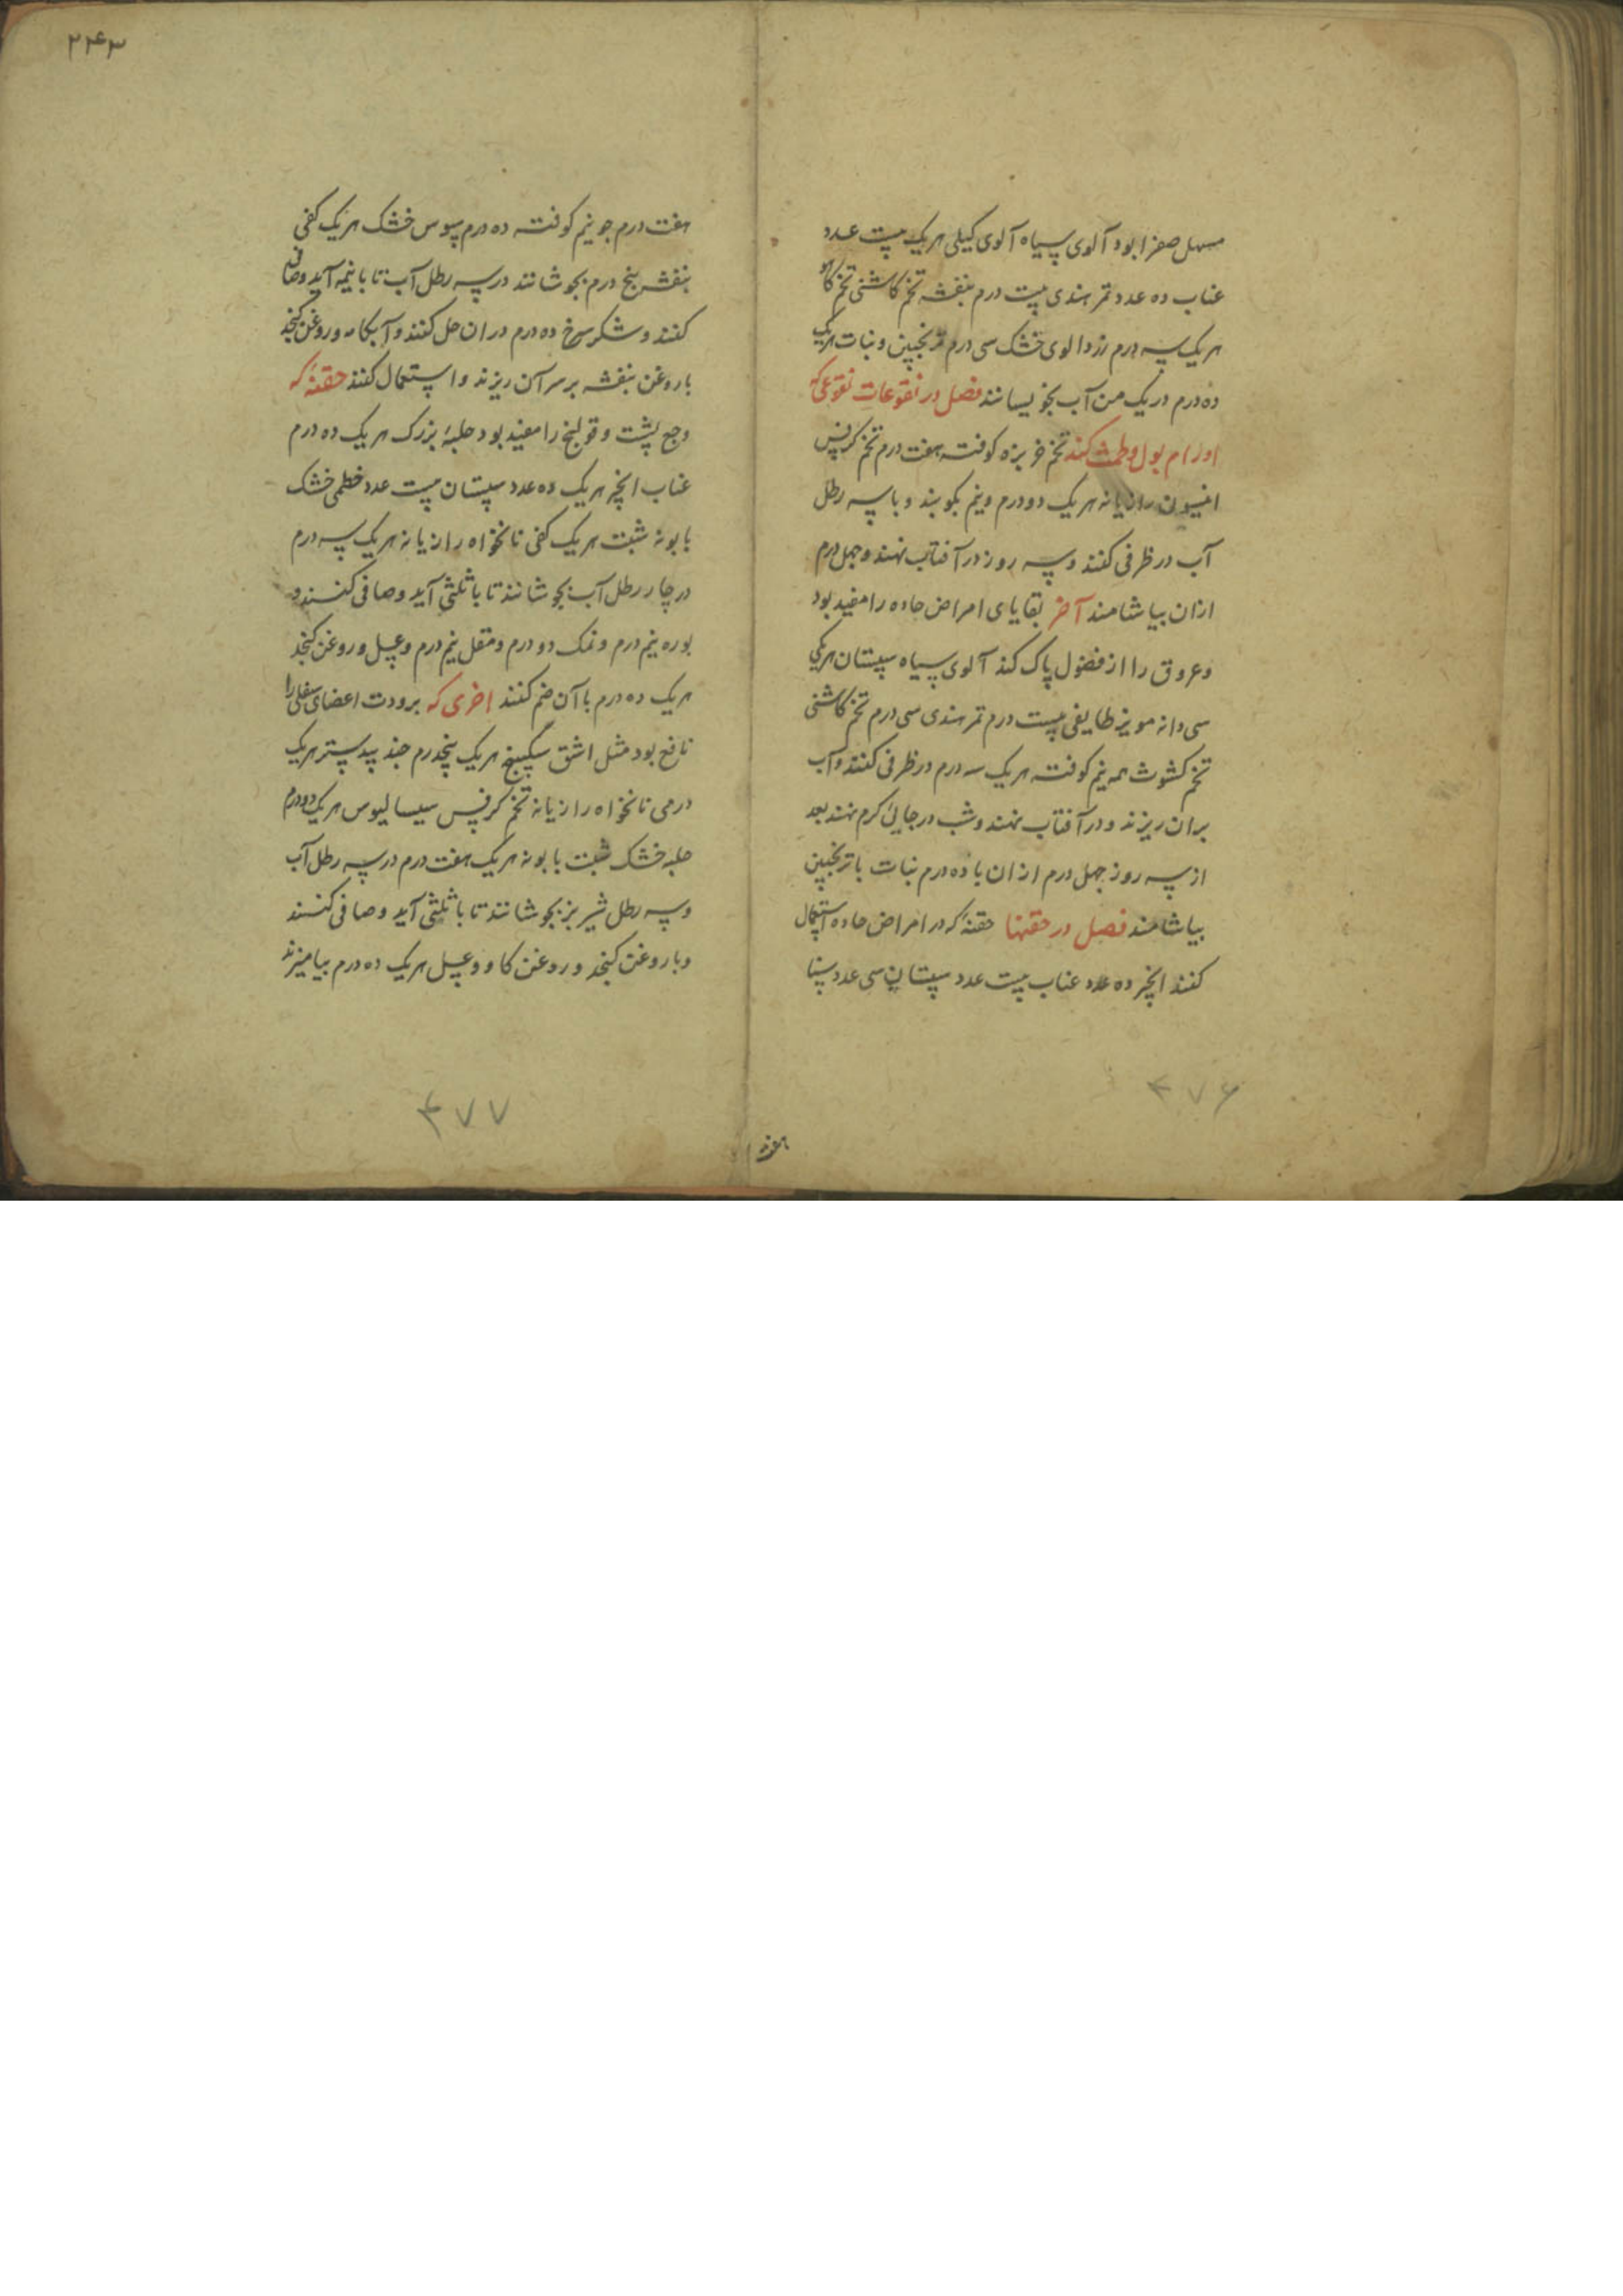 مسهل صفرا بود آلوی سیاه آلوی کیلی هریک بیست عدد
عناب ده عدد تمر هندی بیست درم بنفشه تخم کاشنی تخم کاهو
هریک سه درم زردالوی خشک سی درم ترنجبین و نبات هریک
ده درم در یک من آب بخویسانند فصل در نقوعات نقوعی که
ادرار بول و طمث کند تخم خربزه کوفته هفت درم تخم کرفس
انیسون رازیانه هریک دو درم و نیم بکوبند و با سه رطل
آب در ظرفی کنند و سه روز در آفتاب نهند و چهل درم
ازان بیاشامند آخر بقایای امراض حاده را مفید بود
و عروق را از فضول پاک کند آلوی سیاه سپستان هریکی
سی دانه مویز طایفی بیست درم تمر هندی سی درم تخم کاشنی
تخم کشوث همه نیم کوفته هریک سه درم در ظرفی کنند و آب
بران ریزند و در آفتاب نهند و شب در جایی گرم نهند بعد
از سه روز چهل درم ازان با ده درم نبات یا ترنجبین
بیاشامند فصل در حقنها حقنه که در امراض حاده استعمال
کنند انجیر ده عدد عناب بیست عدد سپستان سی عدد سنا
۴۷۶
۲۴۳
هفت درم جو نیم کوفته ده درم سبوس خشک هریک کفی
بنفشه پنج درم بجوشانند در سه رطل آب تا با نیمه آید و صافی
کنند و شکر سرخ ده درم دران حل کنند و آبکامه و روغن کنجد
یا روغن بنفشه بر سر آن ریزند و استعمال کنند حقنه که
وجع پشت و قولنج را مفید بود حلبه بزرک هریک ده درم
عناب انجیر هریک ده عدد سپستان بیست عدد خطمی خشک
بابونه شبت هریک کفی نانخواه رازیانه هریک سه درم
در چهار رطل آب بجوشانند تا با ثلثی آید و صافی کنند و
بوره نیم درم و نمک دو درم و مقل نیم درم و عسل و روغن کنجد
هریک ده درم با آن ضم کنند اخری که برودت اعضای سفلی را
نافع بود مثل اشق سکبینج هریک پنجدرم جند بیدستر هریک
درمی نانخواه رازیانه تخم کرفس سیسالیوس هریک دو درم
حلبه خشک شبت بابونه هریک هفت درم در سه رطل آب
و سه رطل شیر بز بجوشانند تا با ثلثی آید و صافی کنند
و با روغن کنجد و روغن کاو و عسل هریک ده درم بیامیزند
۴۷۷